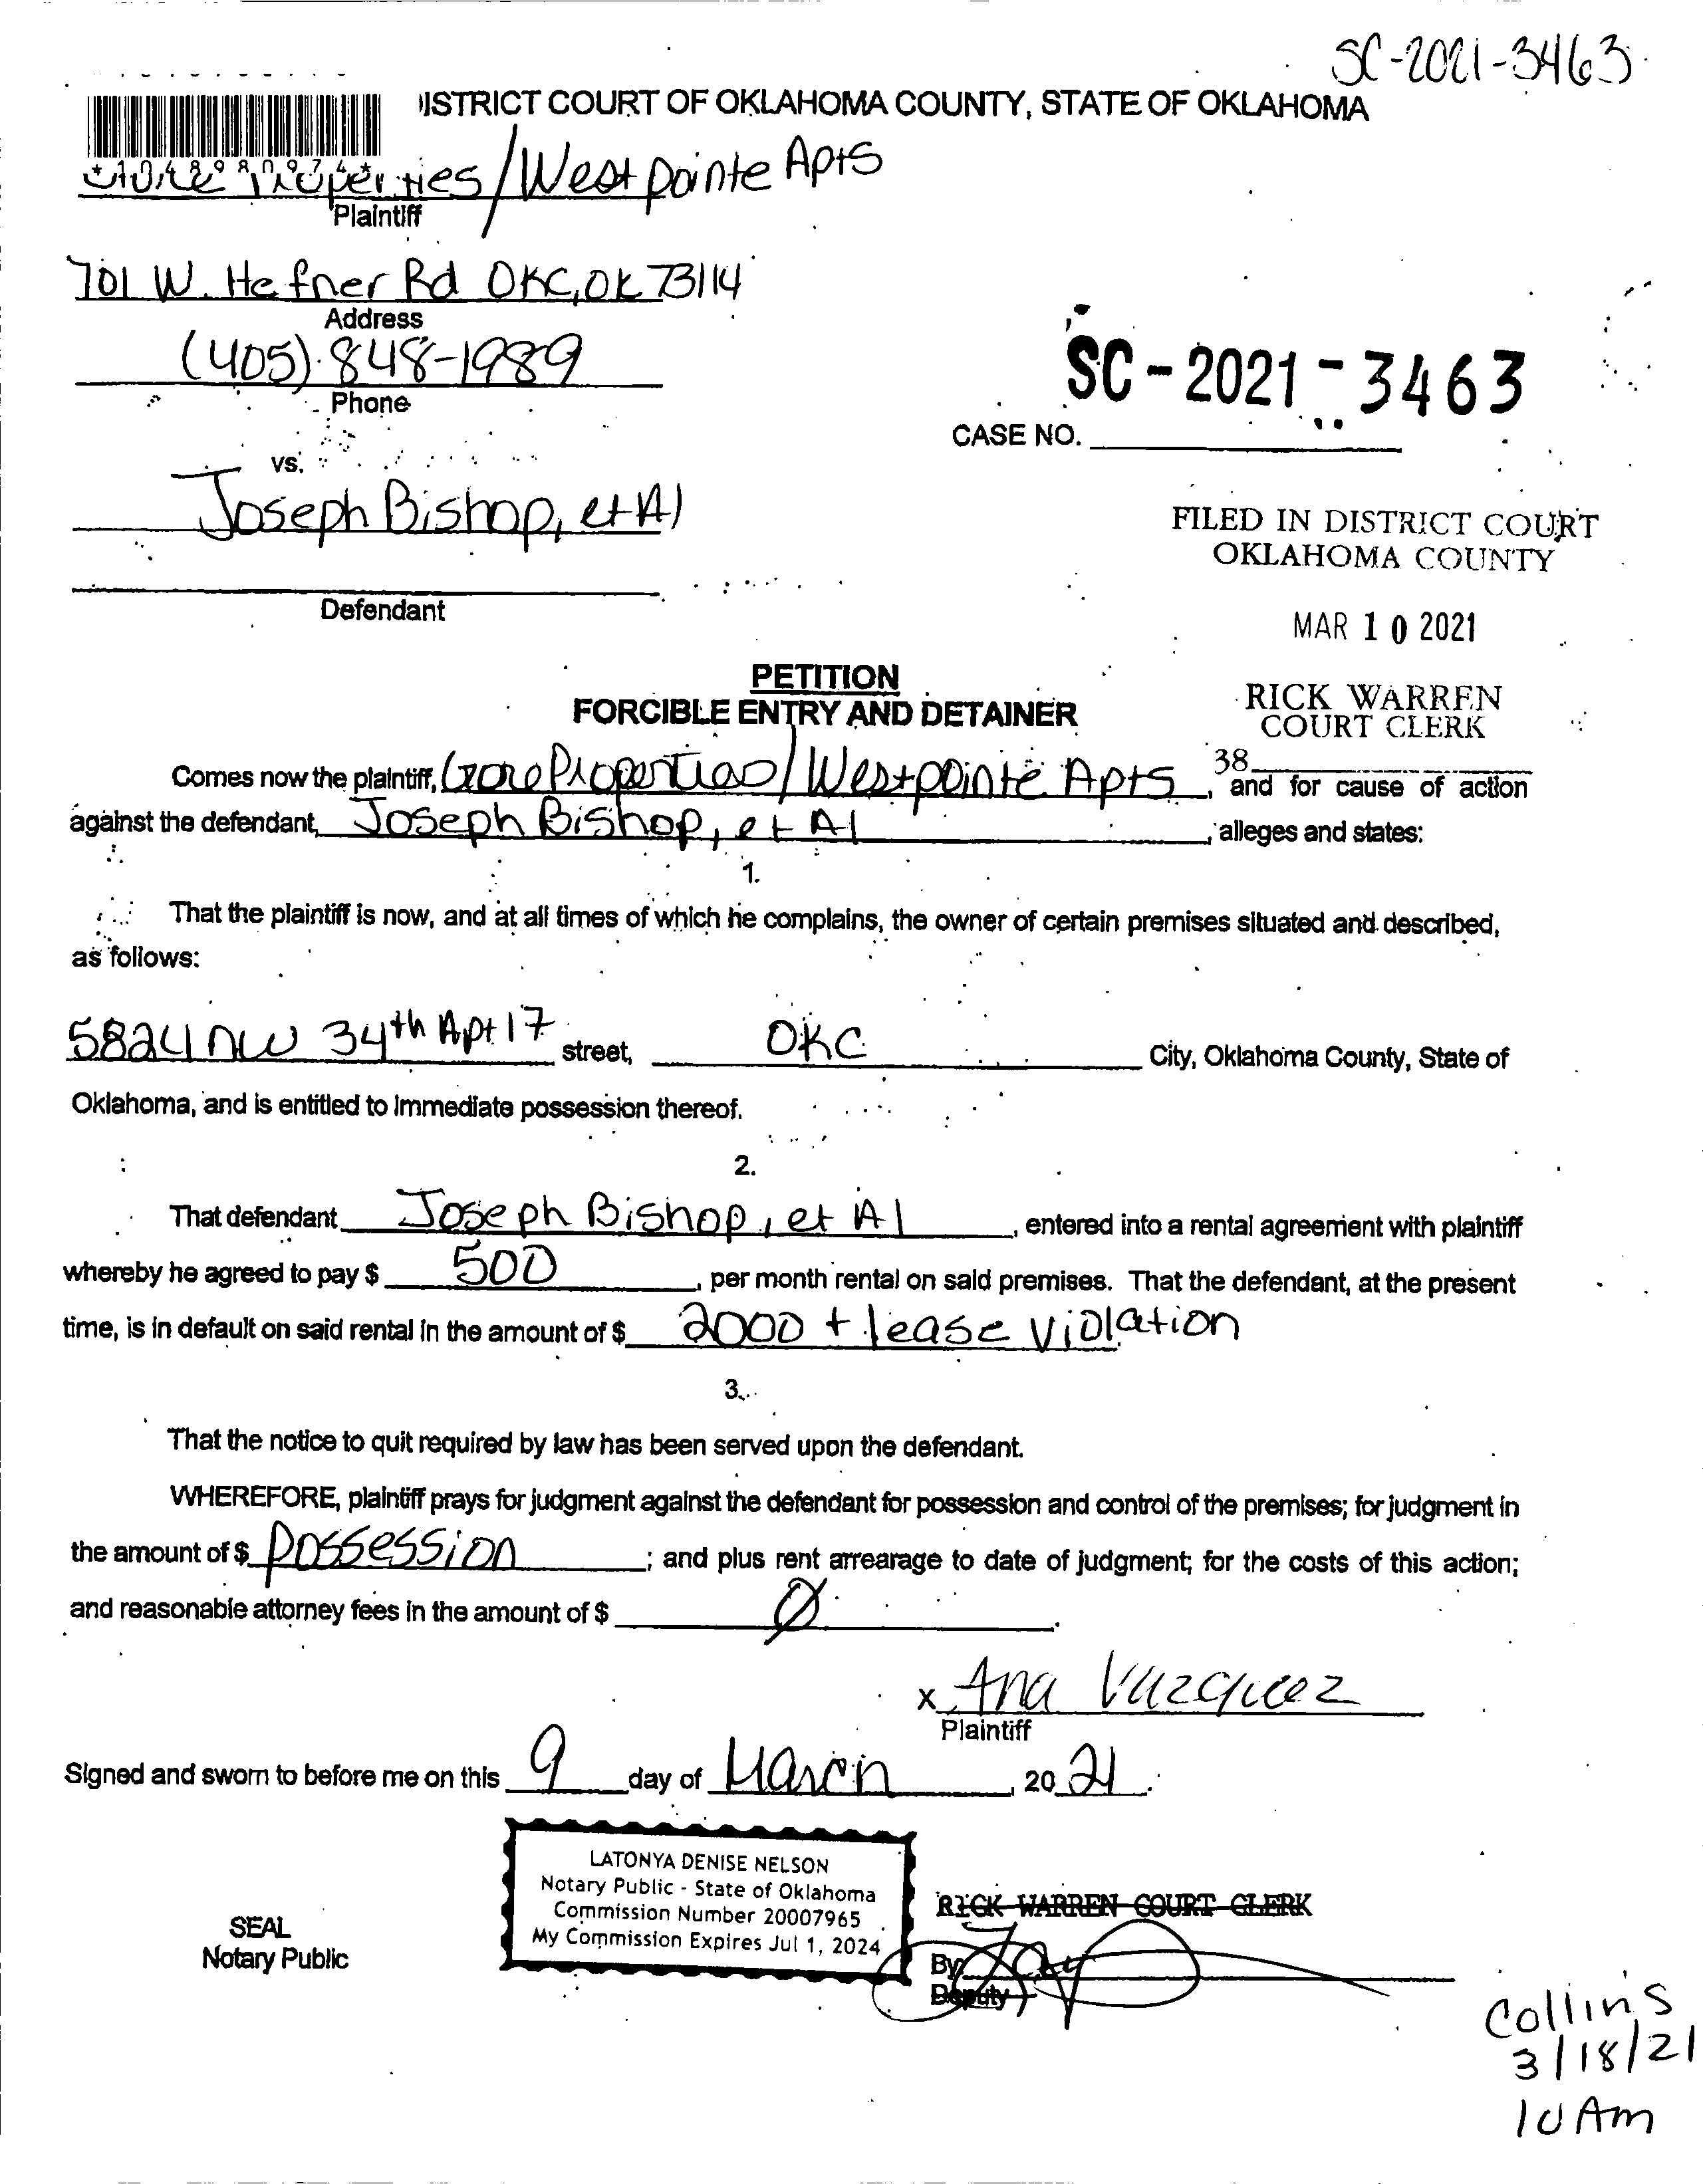 SC-2021-3463
ISTRICT COURT OF OKLAHOMA COUNTY, STATE OF OKLAHOMA
*1048980974*
Properties/Westpointe Apts
Plaintiff
701 W. Hefner Rd OKC, OK 73114
Address
(405) 848-1989
Phone
SC-2021-3463
CASE NO.
vs.
Joseph Bishop, et Al
FILED IN DISTRICT COURT
OKLAHOMA COUNTY
Defendant
MAR 10 2021
PETITION
FORCIBLE ENTRY AND DETAINER
RICK WARREN
COURT CLERK
38
Comes now the plaintiff, Gore Properties/Westpointe Apts, and for cause of action
against the defendant, Joseph Bishop, et Al, alleges and states:
1.
That the plaintiff is now, and at all times of which he complains, the owner of certain premises situated and described,
as follows:
5824 NW 34th Apt 17 street, OKC City, Oklahoma County, State of
Oklahoma, and is entitled to immediate possession thereof.
2.
That defendant Joseph Bishop, et Al, entered into a rental agreement with plaintiff
whereby he agreed to pay $ 500, per month rental on said premises. That the defendant, at the present
time, is in default on said rental in the amount of $ 2000 + lease violation
3.
That the notice to quit required by law has been served upon the defendant.
WHEREFORE, plaintiff prays for judgment against the defendant for possession and control of the premises; for judgment in
the amount of $ Possession; and plus rent arrearage to date of judgment; for the costs of this action;
and reasonable attorney fees in the amount of $ Ø.
x Ana Vazquez
Plaintiff
Signed and sworn to before me on this 9 day of March, 2021.
LATONYA DENISE NELSON
Notary Public - State of Oklahoma
Commission Number 20007965
My Commission Expires Jul 1, 2024
SEAL
Notary Public
RICK WARREN COURT CLERK
By
Deputy
Collins
3/18/21
10 Am